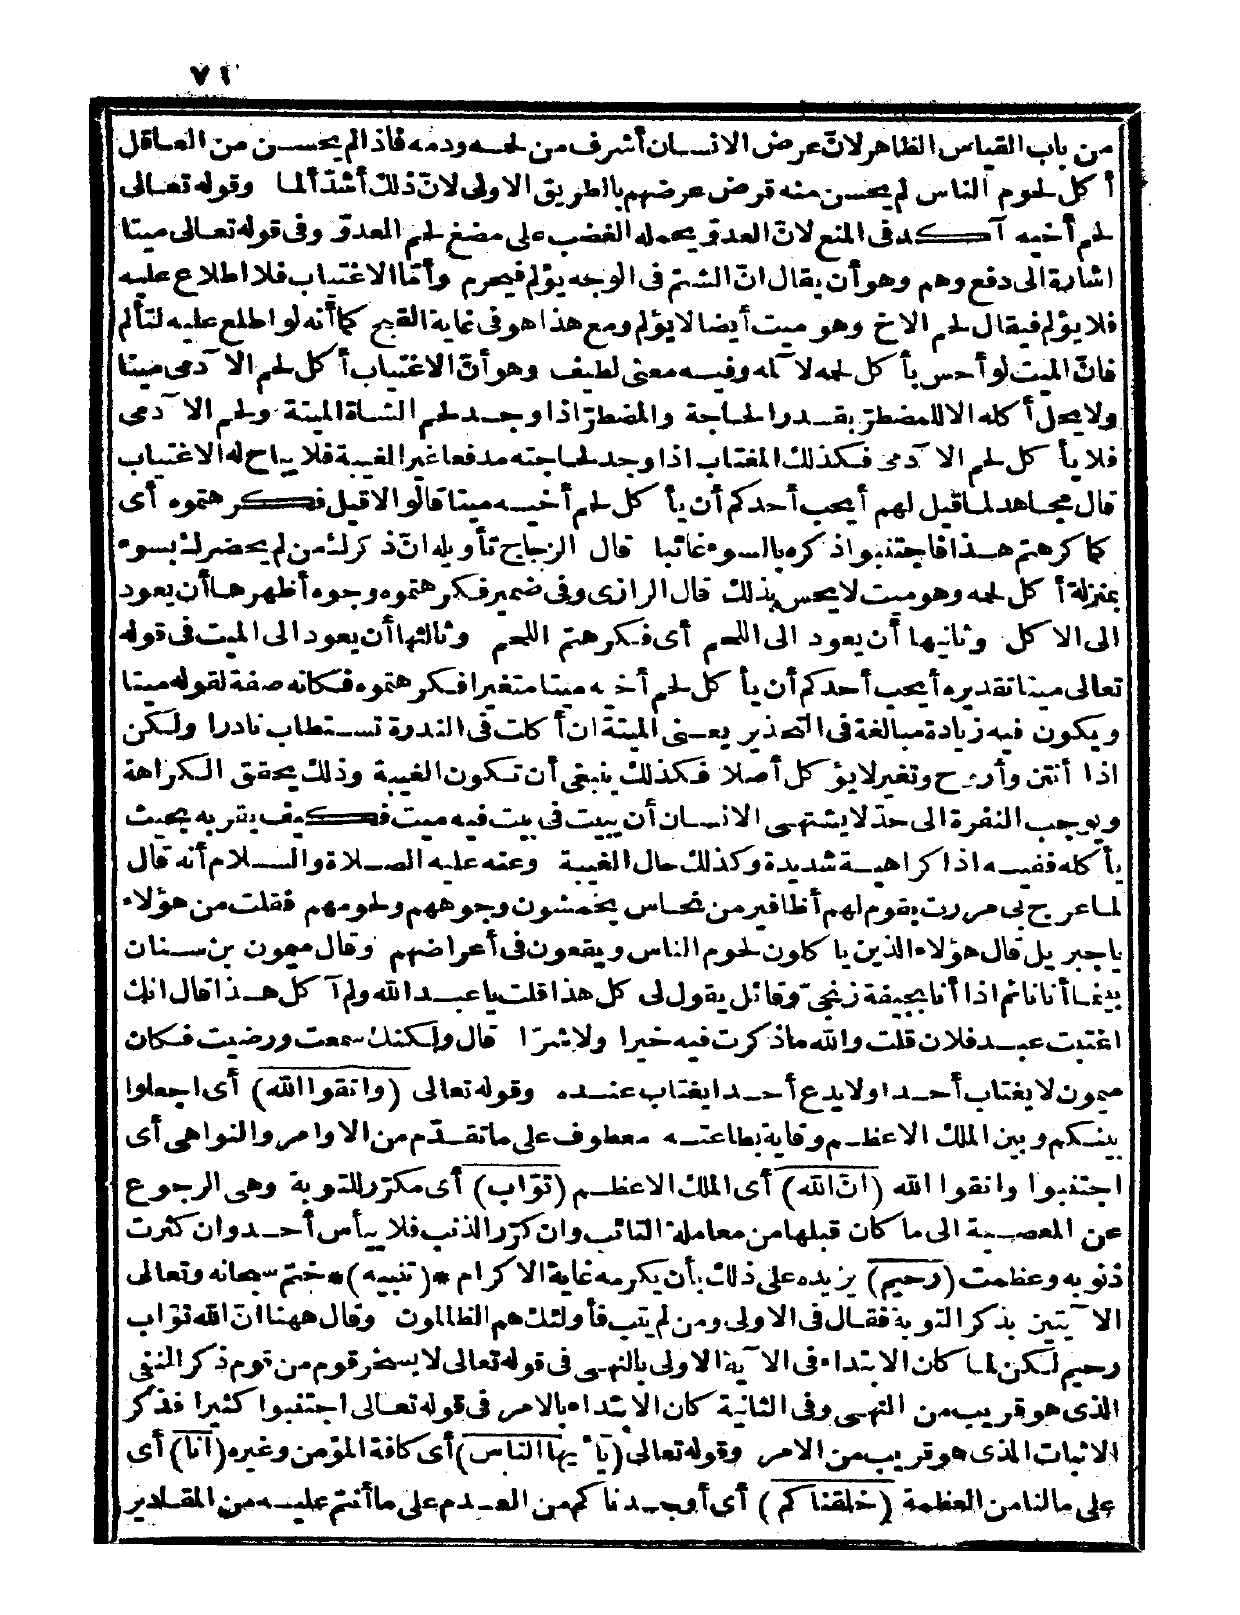 ٧١
من باب القياس الظاهر لانّ عرض الانسان أشرف من لحمه ودمه فاذا لم يحسن من العاقل
أكل لحوم الناس لم يحسن منه قرض عرضهم بالطريق الاولى لانّ ذلك أشدّ ألما وقوله تعالى
لحم أخيه آكد فى المنع لانّ العدوّ يحمله الغضب على مضغ لحم العدوّ وفى قوله تعالى ميتا
اشارة الى دفع وهم وهو أن يقال انّ الشتم فى الوجه يؤلم فيحرم وأمّا الاغتياب فلا اطلاع عليه
فلا يؤلم فيقال لحم الاخ وهو ميت أيضا لا يؤلم ومع هذا هو فى غاية القبح كما أنه لو اطلع عليه لتألم
فانّ الميت لو أحس بأكل لحمه لآلمه وفيه معنى لطيف وهو أنّ الاغتياب أكل لحم الآدمى ميتا
ولا يحل أكله الا للمضطرّ بقدر الحاجة والمضطرّ اذا وجد لحم الشاة الميتة ولحم الآدمى
فلا يأكل لحم الآدمى فكذلك المغتاب اذا وجد لحاجته مدفعا غير الغيبة فلا يباح له الاغتياب
قال مجاهد لما قيل لهم أيحب أحدكم أن يأكل لحم أخيه ميتا قالوا لا قيل فكرهتموه أى
كما كرهتم هذا فاجتنبوا ذكره بالسوء غائبا قال الزجاج تأويله انّ ذكرك من لم يحضرك بسوء
بمنزلة أكل لحمه وهو ميت لا يحس بذلك قال الرازى وفى ضمير فكرهتموه وجوه أظهرها أن يعود
الى الاكل وثانيها أن يعود الى اللحم أى فكرهتم اللحم وثالثها أن يعود الى الميت فى قوله
تعالى ميتا تقديره أيحب أحدكم أن يأكل لحم أخيه ميتا متغيرا فكرهتموه فكانه صفة لقوله ميتا
ويكون فيه زيادة مبالغة فى التحذير يعنى الميتة ان أكلت فى الندرة تستطاب نادرا ولكن
اذا أنتن وأروح وتغير لا يؤكل أصلا فكذلك ينبغى أن تكون الغيبة وذلك يحقق الكراهة
ويوجب النفرة الى حدّ لا يشتهى الانسان أن يبيت فى بيت فيه ميت فكيف يقربه بحيث
يأكله ففيه اذا كراهية شديدة وكذلك حال الغيبة وعنه عليه الصلاة والسلام أنه قال
لما عرج بى مررت بقوم لهم أظافير من نحاس يخمشون وجوههم ولحومهم فقلت من هؤلاء
ياجبريل قال هؤلاء الذين ياكلون لحوم الناس ويقعون فى أعراضهم وقال ميمون بن سنان
بينما أنا نائم اذا أنا بجيفة زنجىّ وقائل يقول لى كل هذا قلت يا عبد الله ولم آكل هذا قال انك
اغتبت عبد فلان قلت والله ما ذكرت فيه خيرا ولا شرّا قال ولكنك سمعت ورضيت فكان
ميمون لا يغتاب أحدا ولا يدع أحدا يغتاب عنده وقوله تعالى (واتقوا الله) أى اجعلوا
بينكم وبين الملك الاعظم وقاية بطاعته معطوف على ما تقدّم من الاوامر والنواهى أى
اجتنبوا واتقوا الله (انّ الله) أى الملك الاعظم (توّاب) أى مكرّر للتوبة وهى الرجوع
عن المعصية الى ما كان قبلها من معاملة التائب وان كرّر الذنب فلا ييأس أحد وان كثرت
ذنوبه وعظمت (رحيم) يزيده على ذلك بأن يكرمه غاية الاكرام *(تنبيه)* ختم سبحانه وتعالى
الآيتين بذكر التوبة فقال فى الاولى ومن لم يتب فأولئك هم الظالمون وقال ههنا انّ الله توّاب
رحيم لكن لما كان الابتداء فى الآية الاولى بالنهى فى قوله تعالى لا يسخر قوم من قوم ذكر النفى
الذى هو قريب من النهى وفى الثانية كان الابتداء بالامر فى قوله تعالى اجتنبوا كثيرا فذكر
الاثبات الذى هو قريب من الامر وقوله تعالى (يأيها الناس) أى كافة المؤمن وغيره (انا) أى
على مالنا من العظمة (خلقناكم) أى أوجدناكم من العدم على ما أنتم عليه من المقادير